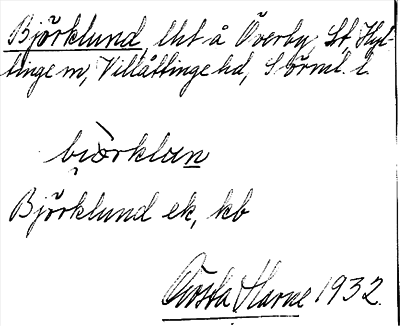 Björklund, lht å Överby, St. Hyl-
tinge sn, Villåttinge hd, Sörml. l.
bi̯ò̀rklan
Björklund ek, kb
Gösta Harne 1932.